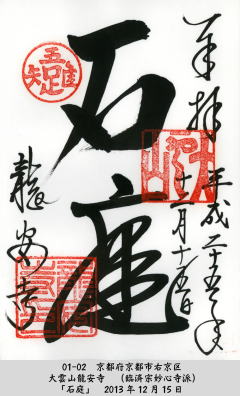 奉拝
平成二十五年
十二月十五日
石庭
龍安寺
01-02　京都府京都市右京区
大雲山龍安寺　（臨済宗妙心寺派）
「石庭」　2013年12月15日